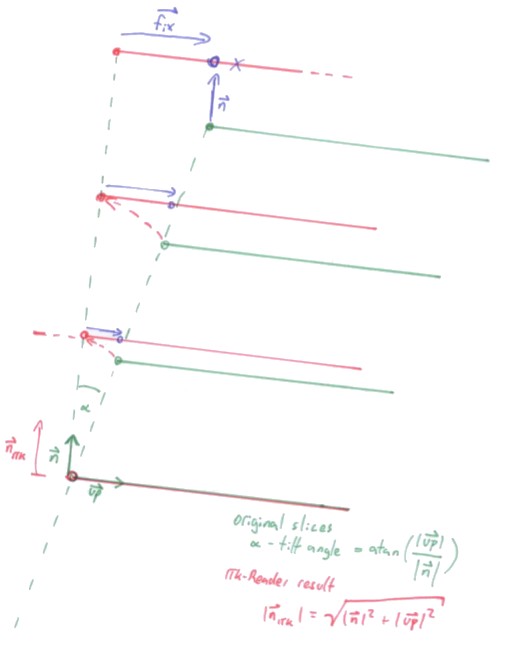 fix
x
n
α
n ITK
n
up
original slices
α - tilt angle = atan(|up| / |n|)
ITK-Render result
|n ITK| = √|n|² + |up|²